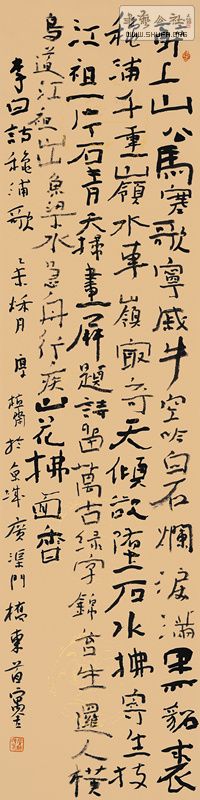 醉上山公馬寒歌寧戚牛空吟白石爛淚滿黑貂裘
秋浦千重嶺水車嶺最奇天傾欲墮石水拂寄生枝
江祖一片石青天掃畫屏題詩留萬古綠字錦苔生邏人橫
鳥道江祖出魚梁水急舟行疾山花拂面香
李白詩秋浦歌 乙未秋月 於京城廣渠門橋東首寫之